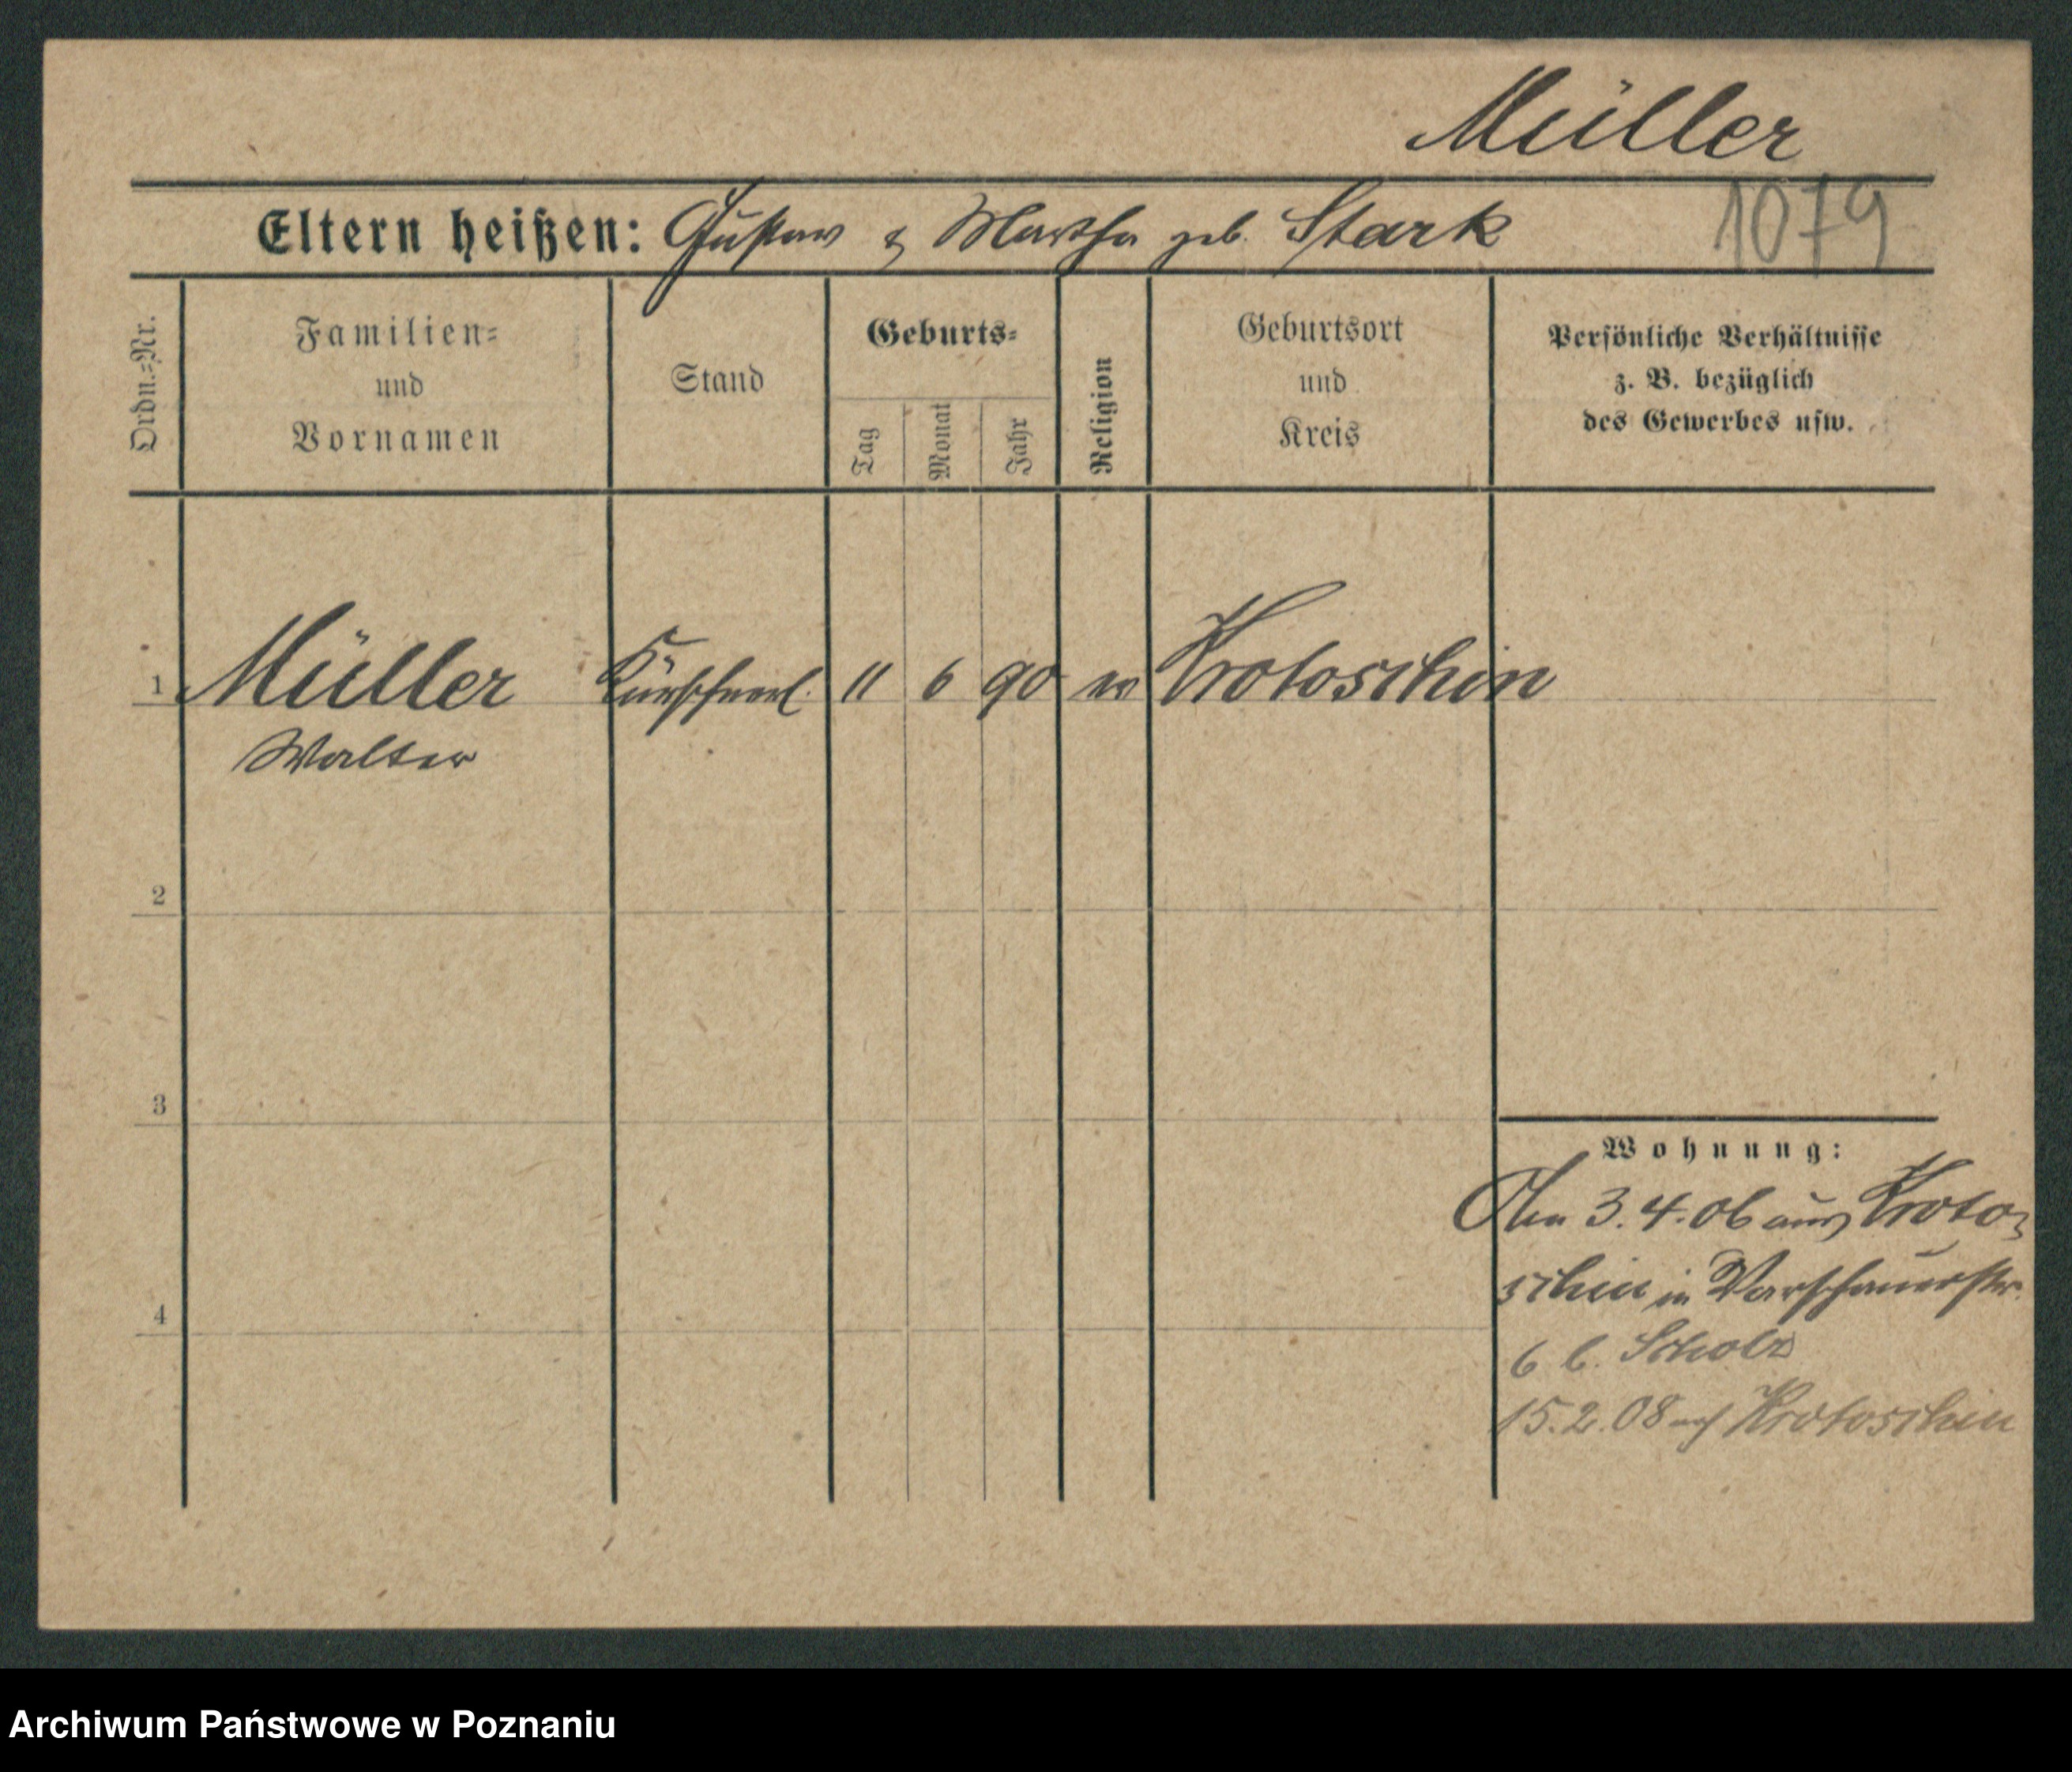 Müller
Eltern heißen: Gustav & Martha geb. Stark
1079
Ordn.-Nr.
Familien-
und
Vornamen
Stand
Geburts-
Tag
Monat
Jahr
Religion
Geburtsort
und
Kreis
Persönliche Verhältnisse
z. B. bezüglich
des Gewerbes usw.
1 Müller Kürschnerl. 11 6 90 ev Krotoschin
Walter
2
3
4
Wohnung:
Am 3.4.06 aus Kroto-
schin in Warschauerstr.
6 b. Scholz
15.2.08 nach Krotoschin
Archiwum Państwowe w Poznaniu